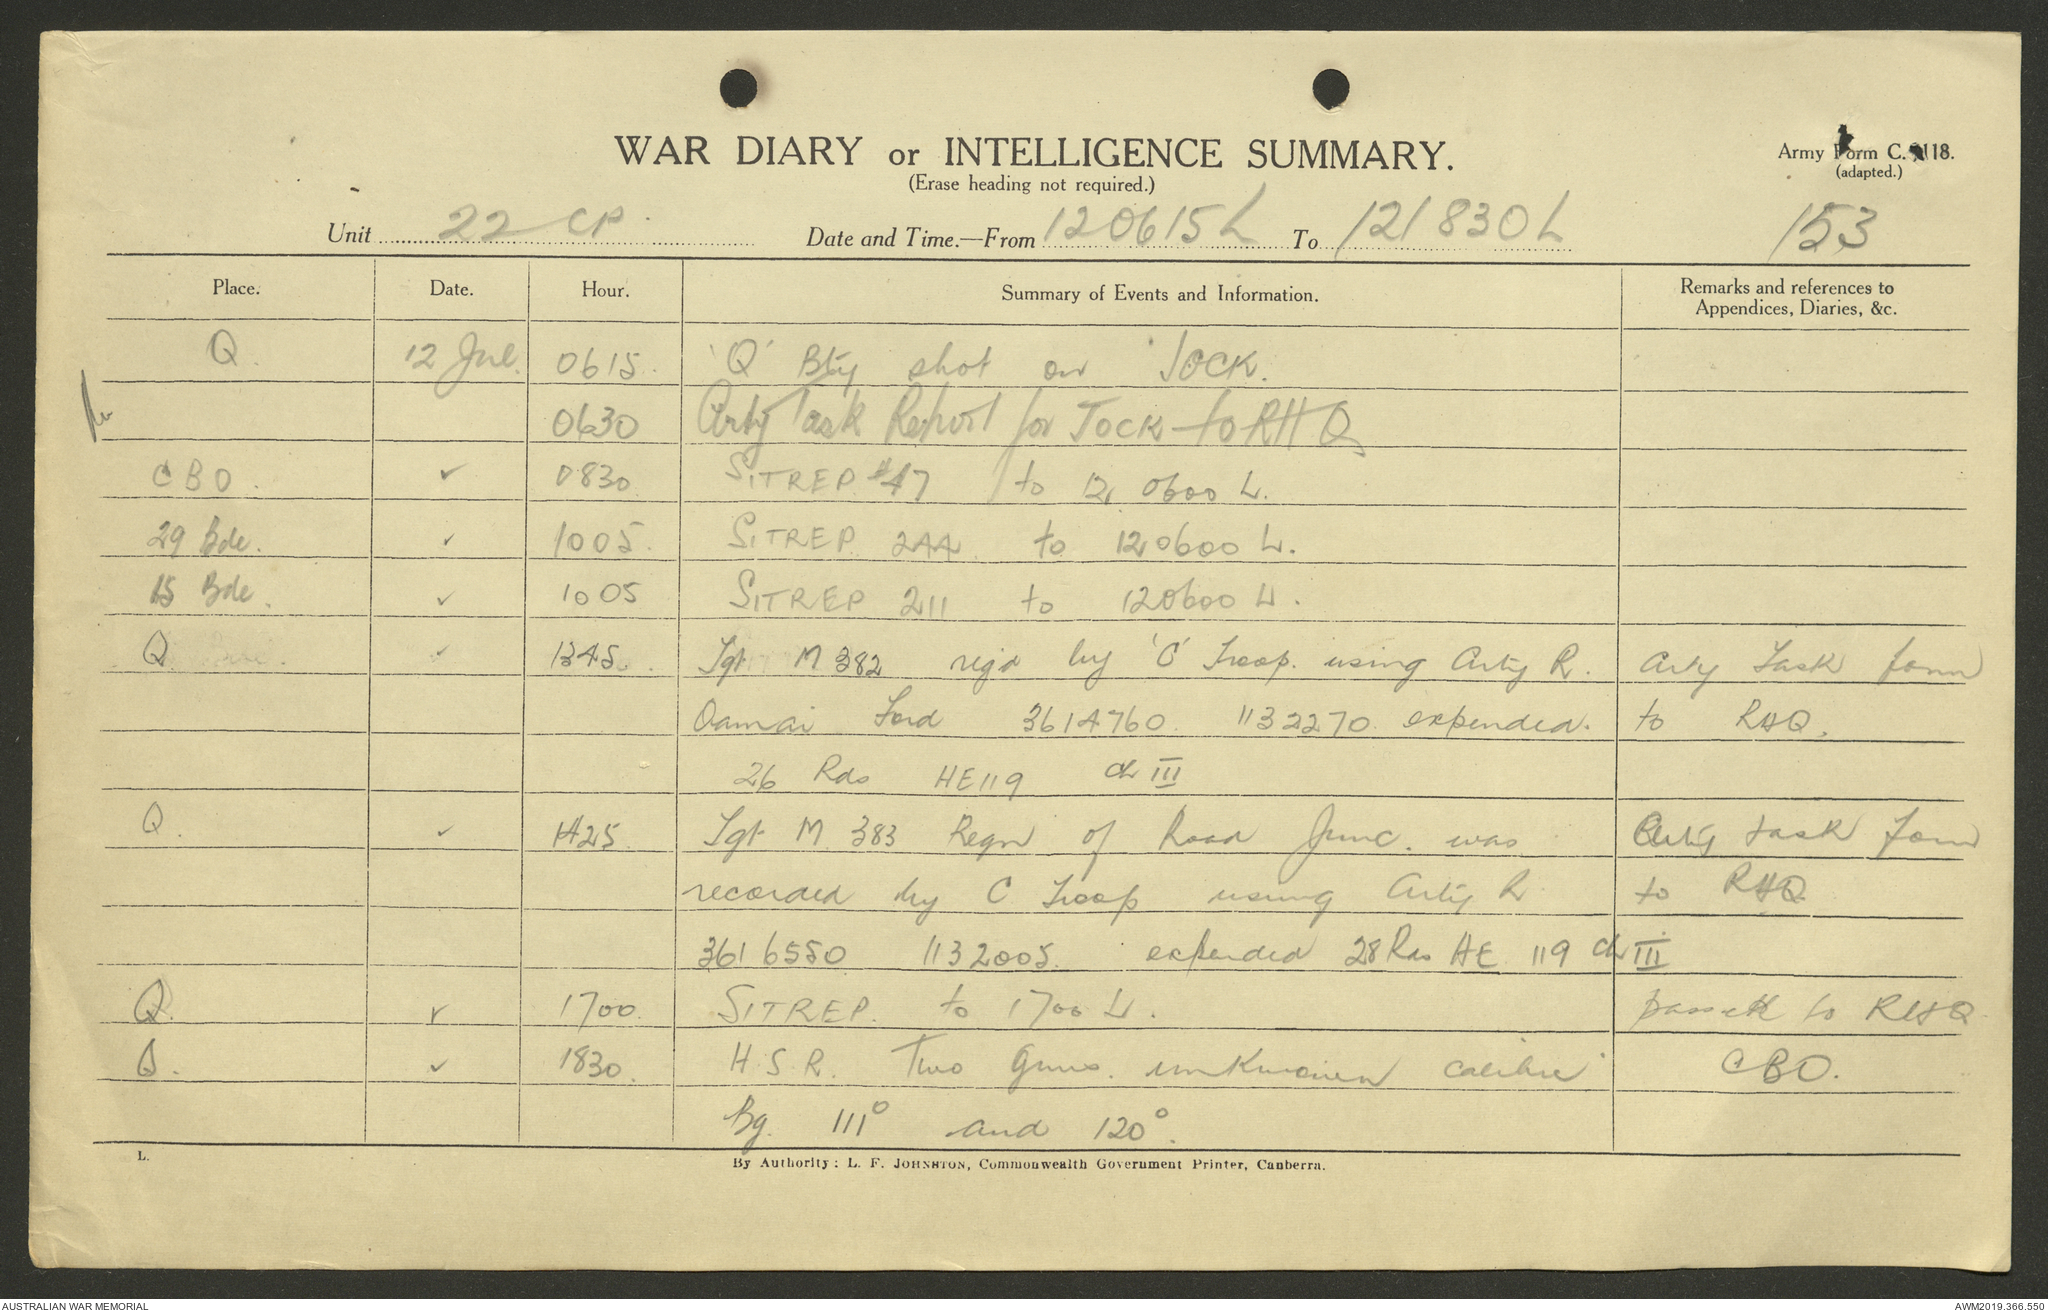 WAR DIARY or INTELLIGENCE SUMMARY.
(Erase heading not required.)
Army Form C. 2118.
(adapted.)
Unit 22 CP. Date and Time.—From 120615L To 121830L 153
Place. Date. Hour. Summary of Events and Information. Remarks and references to Appendices, Diaries, &c.
Q. 12 Jul. 0615. 'Q' Bty shot on JOCK.
0630 Arty Task Report for JOCK to RHQ
CBO. ✓ 0830 SITREP #47 to 120600 L.
29 Bde. ✓ 1005. SITREP 244 to 120600 L.
15 Bde. ✓ 1005 SITREP 211 to 120600 L.
Q ✓ 1345. Tgt M 382 regd by 'C' Troop. using Arty R. Arty Task form
Oamai Ford 3614760. 1132270. expended. to RHQ.
26 Rds HE119 ch III
Q. ✓ 1425 Tgt M 383 Regn of Road Junc. was Arty task form
recorded by C Troop using Arty R to RHQ
3616550 1132005. expended 28 Rds HE 119 ch III
Q. ✓ 1700. SITREP. to 1700 L. to RHQ
Q. ✓ 1830. H.S.R. Two Guns. unknown calibre CBO.
Bg. 111° and 120°.
L. By Authority: L. F. JOHNSTON, Commonwealth Government Printer, Canberra.
AUSTRALIAN WAR MEMORIAL AWM2019.366.550